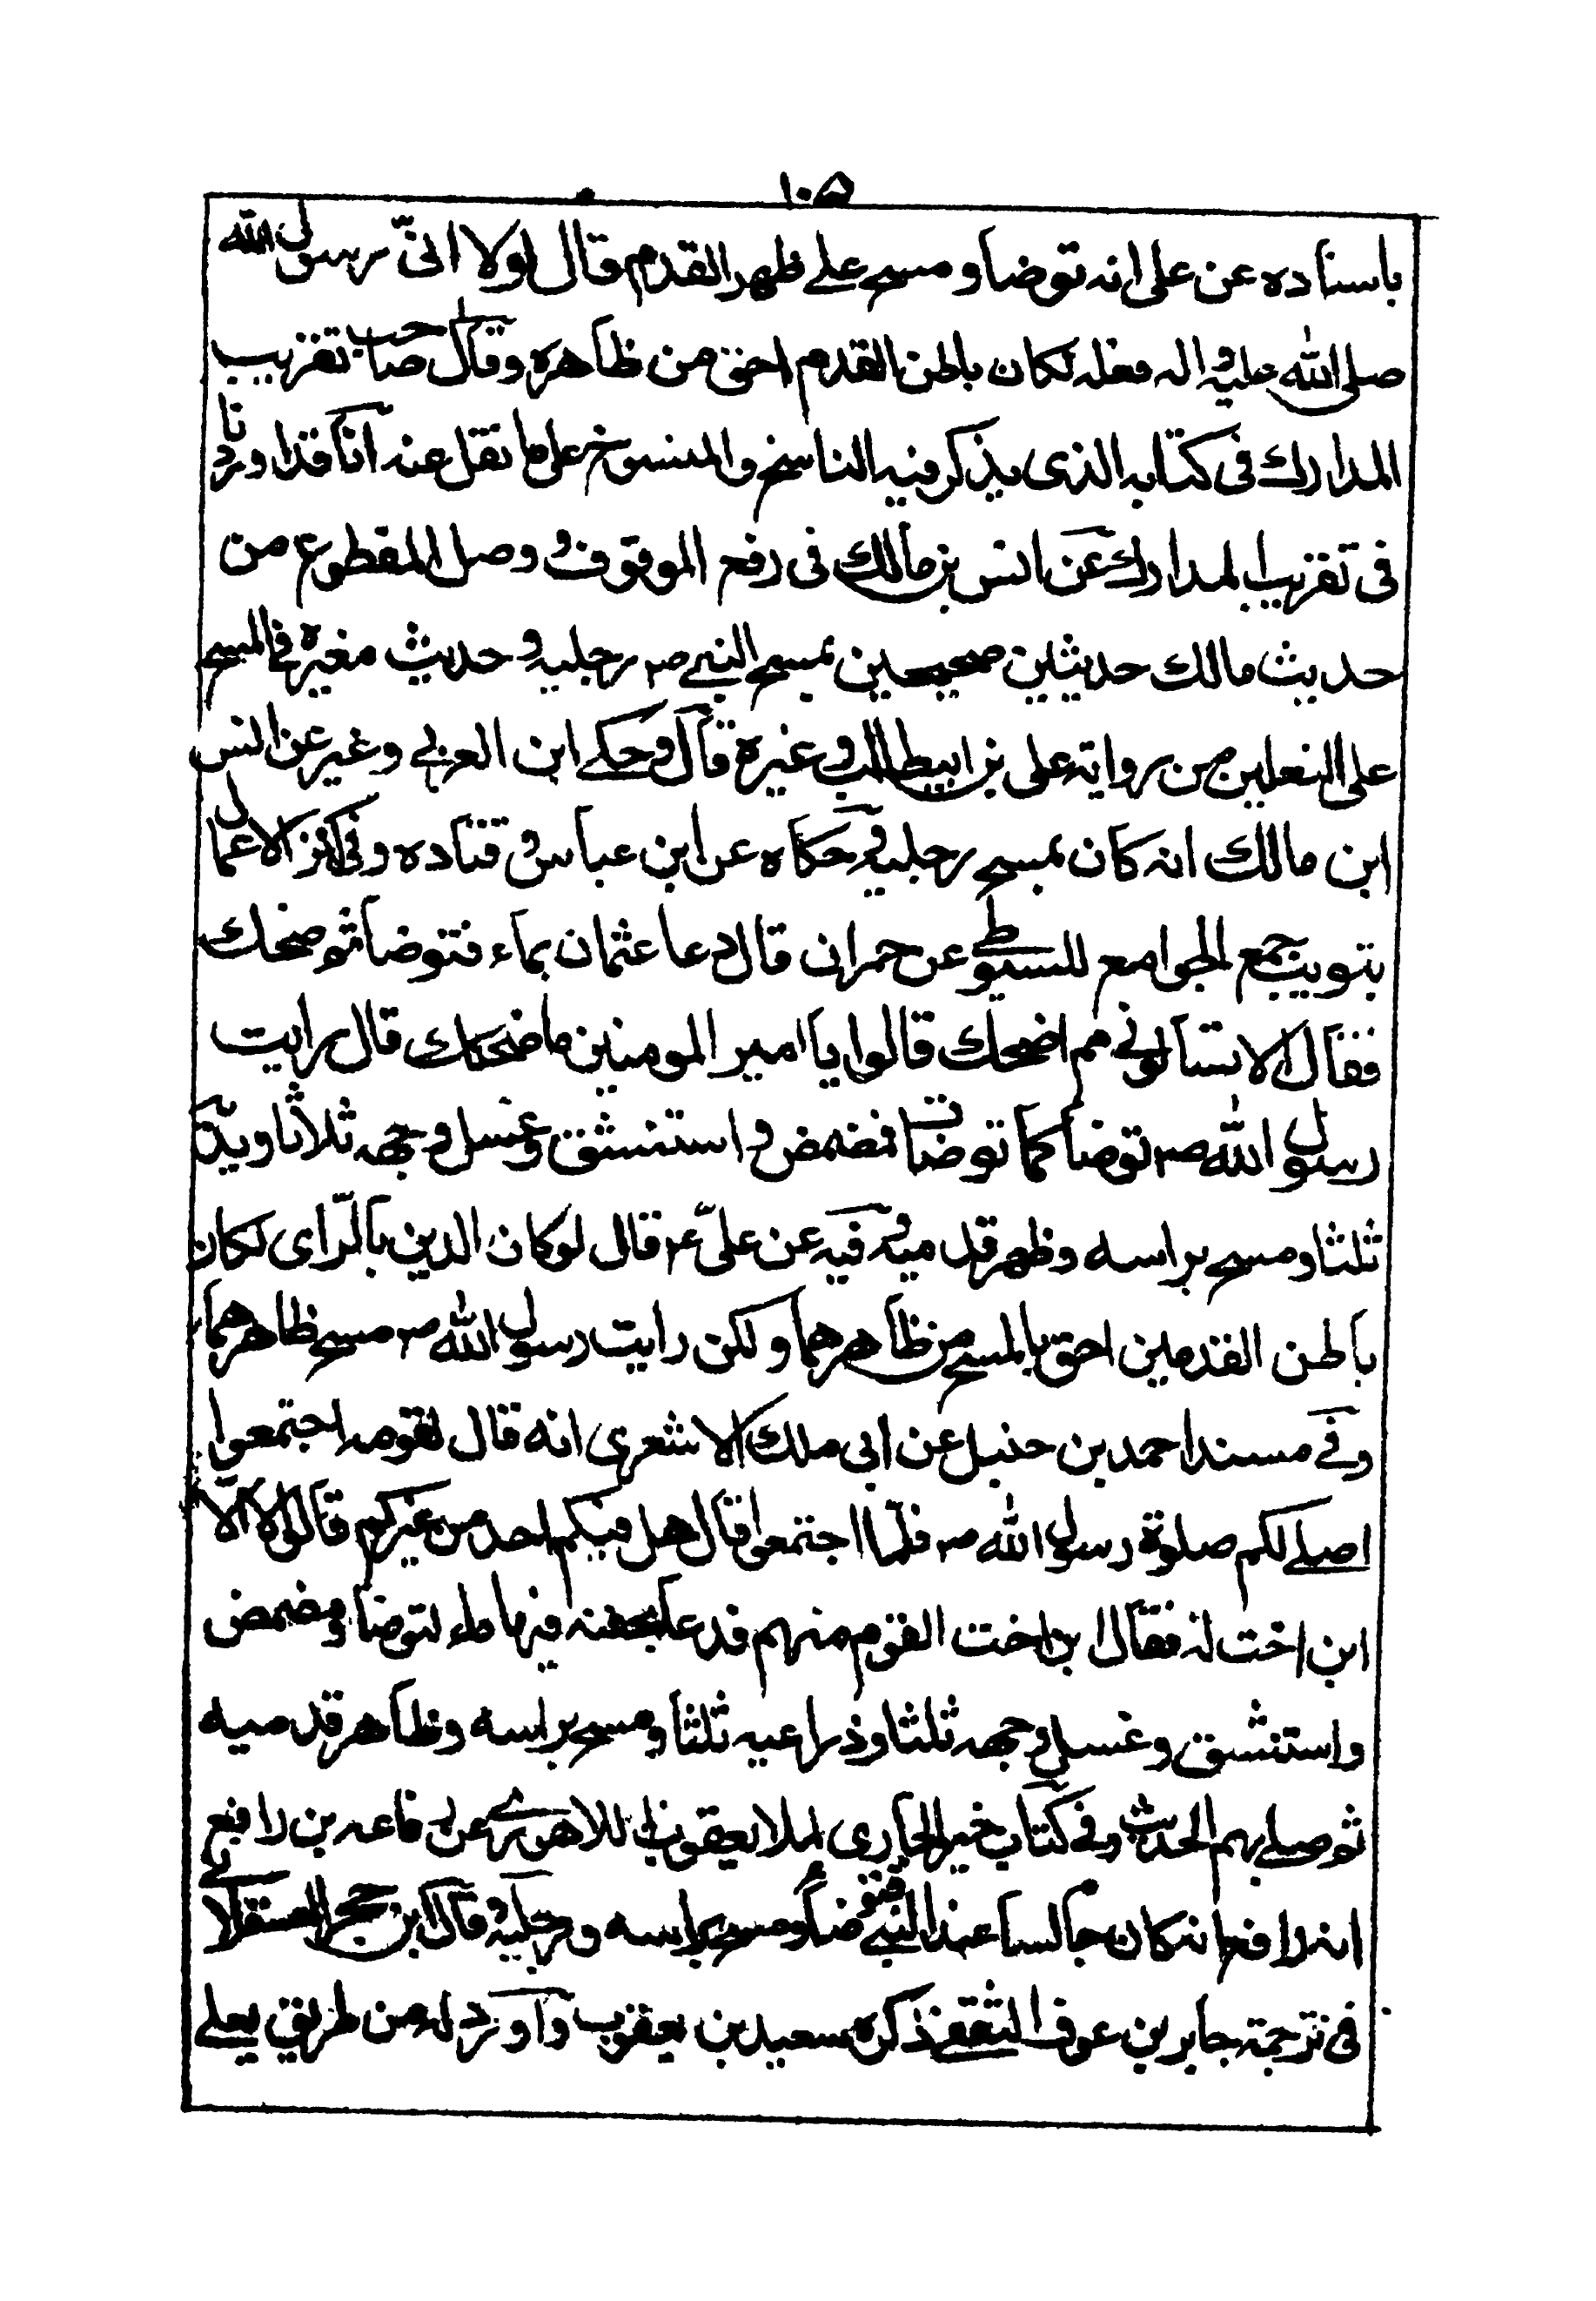 ١٠٥
باسناده عن على انه توضا و مسح على ظهر القدم قال لولا انّى رسول الله
صلى الله عليه و اله فعله لكان باطن القدم احق من ظاهره و قال صاحب تقريب
المدارك فى كتابه الذى يذكر فيه الناسخ و المنسوخ على ما نقل عنه انا قد اوردنا
فى تقريب المدارك عن انس بن مالك فى رفع الموقوف و وصل المقطوع من
حديث مالك حديثين صحيحين بمسح النبى ص رجليه و حديث مغيرة فى المسح
على النعلين من رواية على بن ابيطالب و غيره قال و حكى ابن العربى و غير عن انس
ابن مالك انه كان يمسح رجليه و حكاه عن ابن عباس و قتاده و فى كنز الاعمال
بتويب جمع الجوامع للسيوطى عن حمران قال دعا عثمان بماء فتوضا ثم ضحك
فقال الا تسالونى مم اضحك قالوا يا امير المومنين ما ضحكك قال رايت
رسول الله ص توضا كما توضات فمضمض و استنشق و غسل وجهه ثلاثا و يديه
ثلثا و مسح براسه و ظهر قدميه و فيه عن علىّ ع قال لو كان الدين بالراى لكان
باطن القدمين احق بالمسح من ظاهرهما و لكن رايت رسول الله ص مسح ظاهرهما
و فى مسند احمد بن حنبل عن ابى ملك الاشعرى انه قال لقومه اجتمعوا
اصلى لكم صلوة رسول الله ص فلمّا اجتمعوا قال هل فيكم احد من غيركم قالوا لا الّا
ابن اخت لنا فقال ابن اخت القوم منهم فدعا بجفنه فيها ماء لتوضا و مضمض
و استنشق و غسل وجهه ثلثا و ذراعيه ثلثا و مسح براسه و ظاهر قدميه
ثم صلى بهم الحديث و فى كتاب خير الجارى لملا يعقوب اللاهورى عن رفاعه بن رافع
انه كان جالسا عند النبى فتوضا و مسح براسه و رجليه و قال ابن حجر العسقلانى
فى ترجمة جابر بن عوف الثقفى ذكره سعيد بن يعقوب و اورد له من طريق يعلى